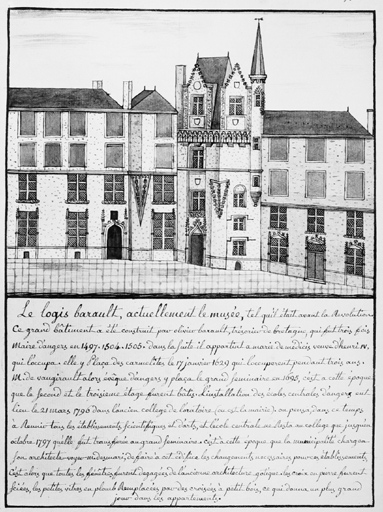 Le logis barault, actuellement le musée, tel qu'il était avant la Révolution
Ce grand bâtiment a été construit par olivier barault, trésorier de bretagne, qui fut trois fois
Maire d'angers en 1497. 1504. 1505. dans la suite il appartint a marie de médicis, veuve d'henri IV.
qui l'occupa. elle y plaça des carmelites le 17 janvier 1629 qui l'occuperent pendant trois ans.
M. de vaugirault alors évêque d'angers y plaça le grand seminaire en 1695, c'est a cette époque
que le second et le troisieme étage furent batis. L'installation des écoles centrales d'angers eut
lieu le 21 mars 1796 dans l'ancien college de l'oratoire, (ou est la mairie). on pensa dans ce temps
a Reunir tous les établissements scientifiques et d'arts, et l'ecole centrale ne Resta au college que jusqu'en
octobre 1797 qu'elle fut transferée au grand seminaire. c'est a cette époque que la municipalité chargea
son architecte voyer de faire a cet édifice les changements necessaires pour ces établissements.
C'est alors que toutes les fenêtres furent degagées de l'ancienne architecture gotique. les croix en pierre furent
sciées, les petits vitres en plomb Remplacées par des croisées a petit bois, ce qui donna un plus grand
jour dans ces appartements.